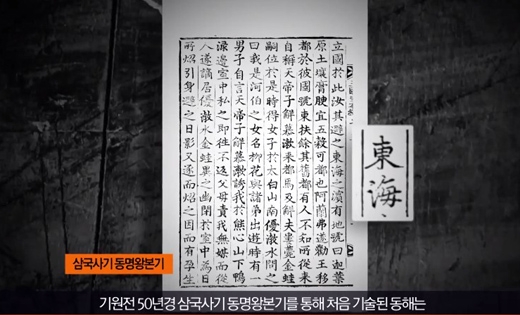 立國於此汝其避之東海之濱有地號曰迦葉
原土壤膏腴宜五穀可都也阿蘭弗遂勸王移
都於彼國號東扶餘其舊都有人不知所從來
自稱天帝子解慕漱來都焉及解夫婁薨金蛙
嗣位於是時得女子於太白山南優渤水問之
曰我是河伯之女名柳花與諸弟出遊時有一
男子自言天帝子解慕漱誘我於熊心山下鴨
淥邊室中私之即往不返父母責我無媒而從
人遂謫居優渤水金蛙異之幽閉於室中爲日
所炤引身避之日影又逐而炤之因而有孕生
東海
삼국사기 동명왕본기
기원전 50년경 삼국사기 동명왕본기를 통해 처음 기술된 동해는